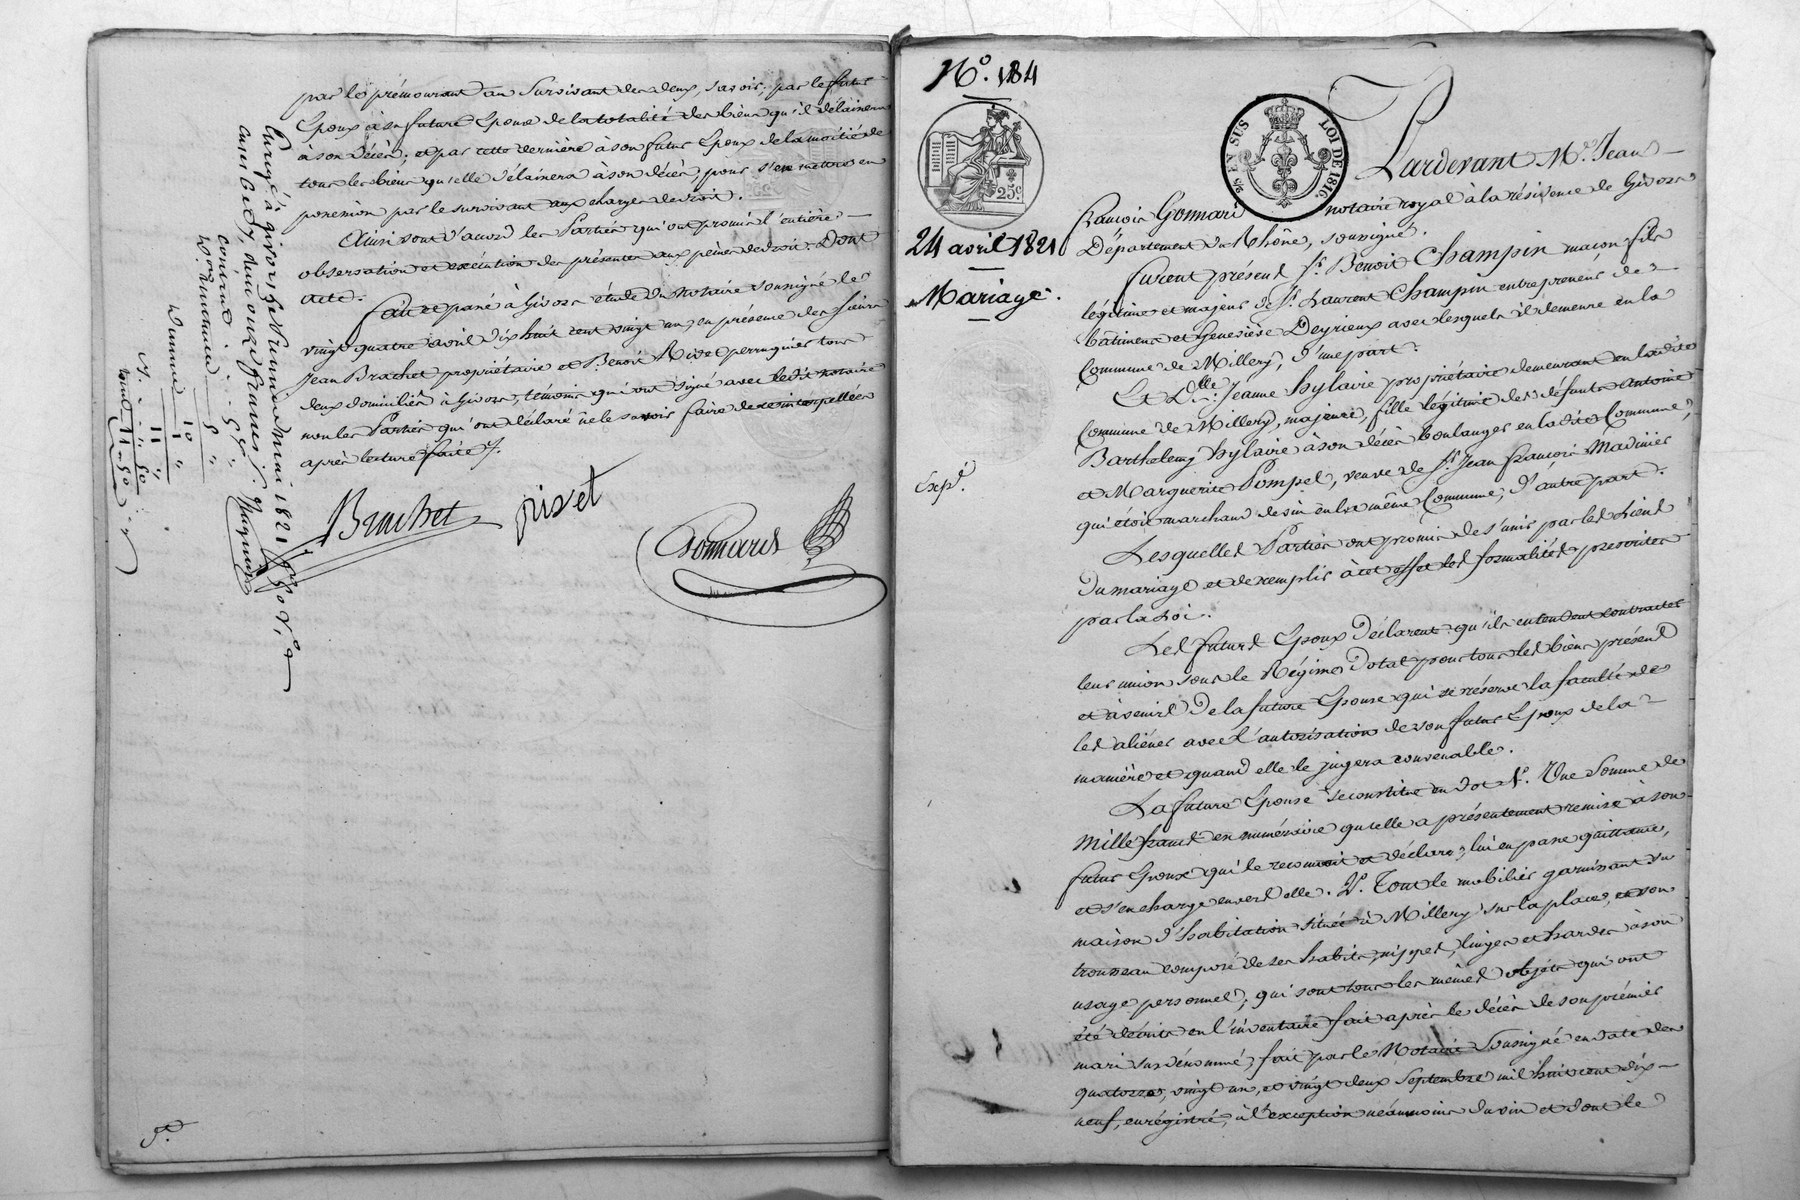 par le prémourant au survivant des deux, savoir; par le futur
Epoux à sa future Epouse de la totalité des biens qu'il délaissera
à son décès; et par cette dernière à son futur Epoux de la moitié de
tous les biens qu'elle délaissera à son décès, pour s'en mettre en
possession par le survivant aux charges de droit.
Ainsi sont d'accord les Parties qui ont promis l'entière
observation et exécution des présentes aux peines de droit. Dont
acte.
Fait et passé à Givors étude du notaire soussigné le
vingt quatre avril dix huit cent vingt un, en présence des sieurs
Jean Brachet propriétaire et Benoit Rivet perruquier tous
deux domiciliés à Givors, témoins qui ont signé avec ledit notaire
non les Parties qui ont déclaré ne le savoir faire de ce interpellées
après lecture faite.
Brachet rivet
Gonnard
Enregé à givors le mai 1821 fo 50 Vo
cases six francs
5 50
5
10
1
11
11 50
No. 184
EN SUS LOI DE 1816
25c
24 avril 1821
Mariage.
Expé.
Pardevant Me. Jean
françois Gonnard notaire royal à la résidence de Givors
Département du Rhône, soussigné.
furent présens sr. Benoit Champin maçon fils
légitime et majeur de sr. Laurent Champin entrepreneur de
bâtimens et Geneviève Deyrieux avec lesquels il demeure en la
Commune de Millery, d'une part.
Et Dlle. Jeanne hylaire propriétaire demeurant en la dite
Commune de Millery, majeure, fille légitime des défunts antoine
Barthelemy hylaire à son décès boulanger en ladite Commune,
et Marguerite Pompel, veuve de sr. Jean françois Madinier
qui étoit marchand de vin en la même Commune, d'autre part.
Lesquelles Parties ont promis de s'unir par les liens
du mariage et de remplir à cet effet les formalités prescrites
par la Loi.
Les futurs Epoux déclarent qu'ils entendent contracter
leur union sous le Régime dotal pour tous les biens présens
et à venir de la future Epouse qui se réserve la faculté de
les aliéner avec l'autorisation de son futur Epoux de la
manière et quand elle le jugera convenable.
La future Epouse se constitue en dot 1o. Une Somme de
Mille francs en numéraire qu'elle a présentement remise à son
futur Epoux qui le reconnait et déclare, lui en passe quittance,
et s'en charge envers elle. 2o. Tout le mobilier garnissant sa
maison d'habitation située à Millery sur la place, et son
trousseau composé de ses habits, nippes, linges et hardes à son
usage personnel, qui sont tous les mêmes objets qui ont
été décrits en l'inventaire fait après le décès de son premier
mari susdénommé, fait par le Notaire Soussigné en date des
quatorze, vingt un, et vingt deux Septembre mil huit cent dix
neuf, enrégistré, à l'exception néanmoins du vin et dont le